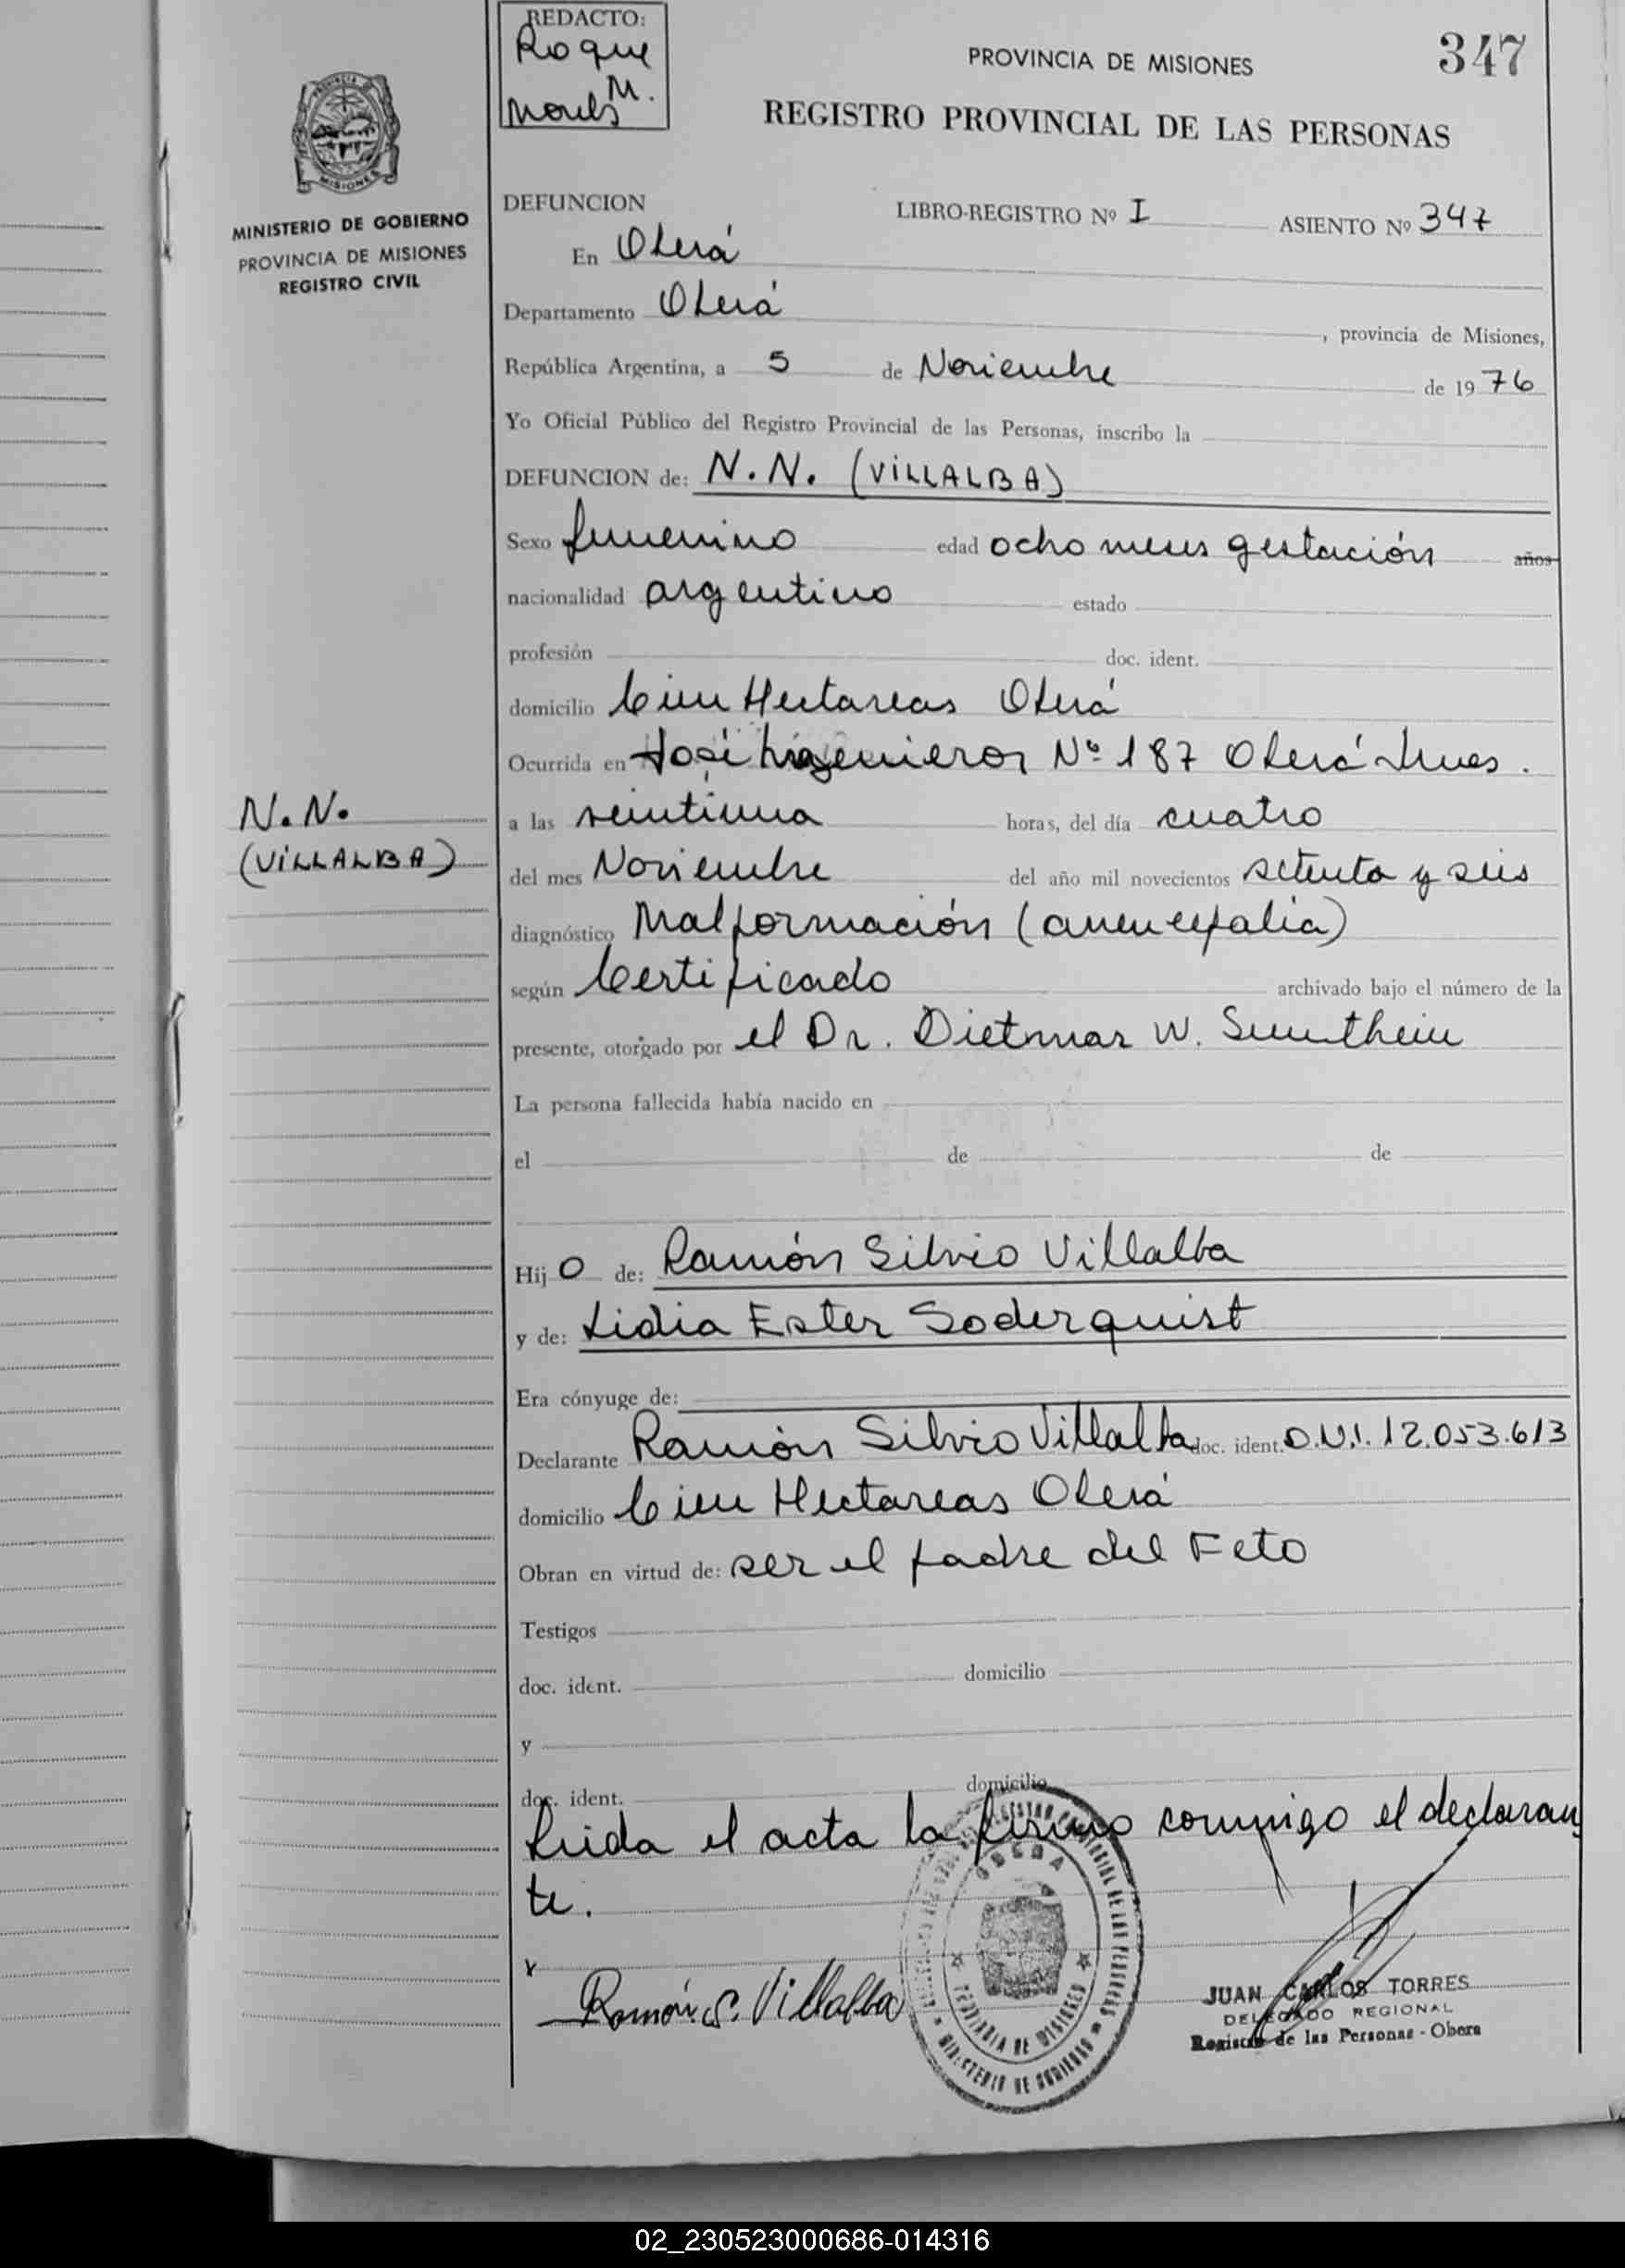 REDACTO:
Roque
M.
PROVINCIA DE MISIONES
347
REGISTRO PROVINCIAL DE LAS PERSONAS
MISIONES
MINISTERIO DE GOBIERNO
PROVINCIA DE MISIONES
REGISTRO CIVIL
DEFUNCION
LIBRO-REGISTRO Nº I ASIENTO Nº 347
En Oberá
Departamento Oberá, provincia de Misiones,
República Argentina, a 5 de Noviembre de 1976
Yo Oficial Público del Registro Provincial de las Personas, inscribo la
DEFUNCION de: N.N. (VILLALBA)
Sexo femenino edad ocho meses gestación años
nacionalidad argentino estado
profesión doc. ident.
domicilio Cien Hectareas Oberá
Ocurrida en José Ingenieros Nº 187 Oberá Mnes.
N.N.
(VILLALBA)
a las veintiuna horas, del día cuatro
del mes Noviembre del año mil novecientos setenta y seis
diagnóstico Malformación (anencefalia)
según Certificado archivado bajo el número de la
presente, otorgado por el Dr. Dietmar W.
La persona fallecida había nacido en
el de de
Hijo de: Ramón Silvio Villalba
y de: Lidia Ester Soderquist
Era cónyuge de:
Declarante Ramón Silvio Villalba doc. ident. D.N.I. 12.053.613
domicilio Cien Hectareas Oberá
Obran en virtud de: ser el padre del Feto
Testigos
doc. ident. domicilio
y
doc. ident. domicilio
Leida el acta la firmo conmigo el declaran
te.
Ramón S. Villalba
OBERA
PROVINCIA DE MISIONES
MINISTERIO DE GOBIERNO
JUAN CARLOS TORRES
DELEGADO REGIONAL
Registro de las Personas - Obera
02_230523000686-014316